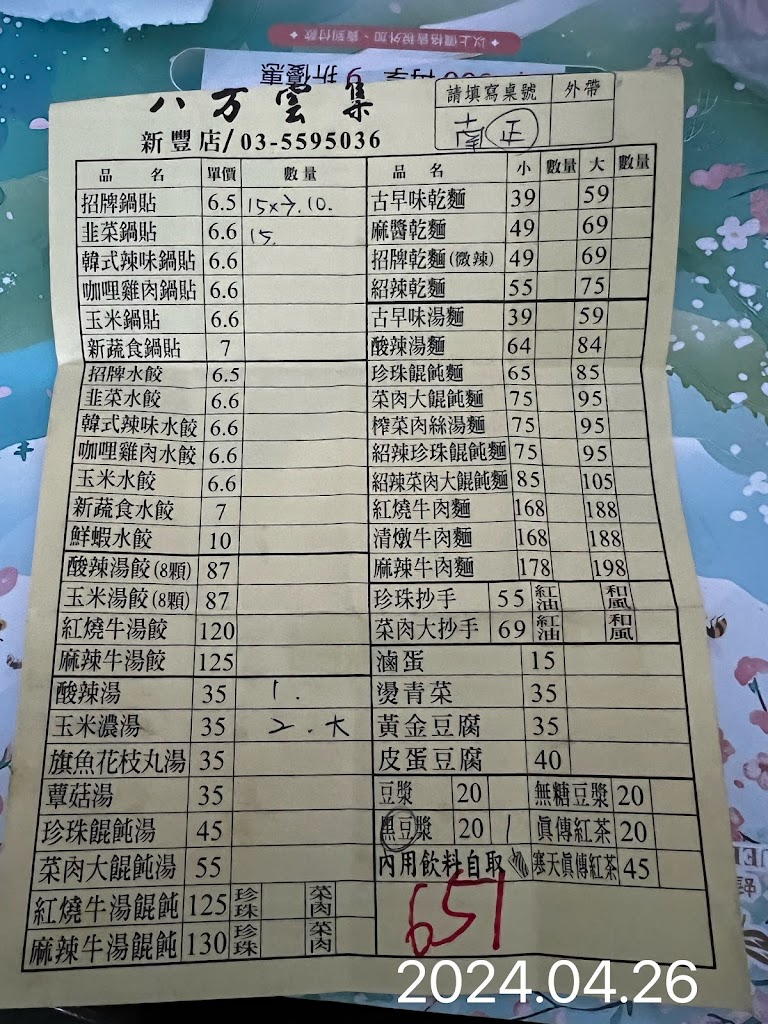 以上價格皆稅外加、貨到付款
折優惠
八方雲集
請填寫桌號 外帶
新豐店/03-5595036
品名 單價 數量 品名 小 數量 大 數量
招牌鍋貼 6.5 15x7.10. 古早味乾麵 39 59
韭菜鍋貼 6.6 15. 麻醬乾麵 49 69
韓式辣味鍋貼 6.6 招牌乾麵(微辣) 49 69
咖哩雞肉鍋貼 6.6 紹辣乾麵 55 75
玉米鍋貼 6.6 古早味湯麵 39 59
新蔬食鍋貼 7 酸辣湯麵 64 84
招牌水餃 6.5 珍珠餛飩麵 65 85
韭菜水餃 6.6 菜肉大餛飩麵 75 95
韓式辣味水餃 6.6 榨菜肉絲湯麵 75 95
咖哩雞肉水餃 6.6 紹辣珍珠餛飩麵 75 95
玉米水餃 6.6 紹辣菜肉大餛飩麵 85 105
新蔬食水餃 7 紅燒牛肉麵 168 188
鮮蝦水餃 10 清燉牛肉麵 168 188
酸辣湯餃(8顆) 87 麻辣牛肉麵 178 198
玉米湯餃(8顆) 87 珍珠抄手 55 紅油 和風
紅燒牛湯餃 120 菜肉大抄手 69 紅油 和風
麻辣牛湯餃 125 滷蛋 15
酸辣湯 35 1. 燙青菜 35
玉米濃湯 35 2.大 黃金豆腐 35
旗魚花枝丸湯 35 皮蛋豆腐 40
蕈菇湯 35 豆漿 20 無糖豆漿 20
珍珠餛飩湯 45 黑豆漿 20 1 真傳紅茶 20
菜肉大餛飩湯 55 內用飲料自取 寒天真傳紅茶 45
紅燒牛湯餛飩 125 珍珠 菜肉
麻辣牛湯餛飩 130 珍珠 菜肉
651
2024.04.26